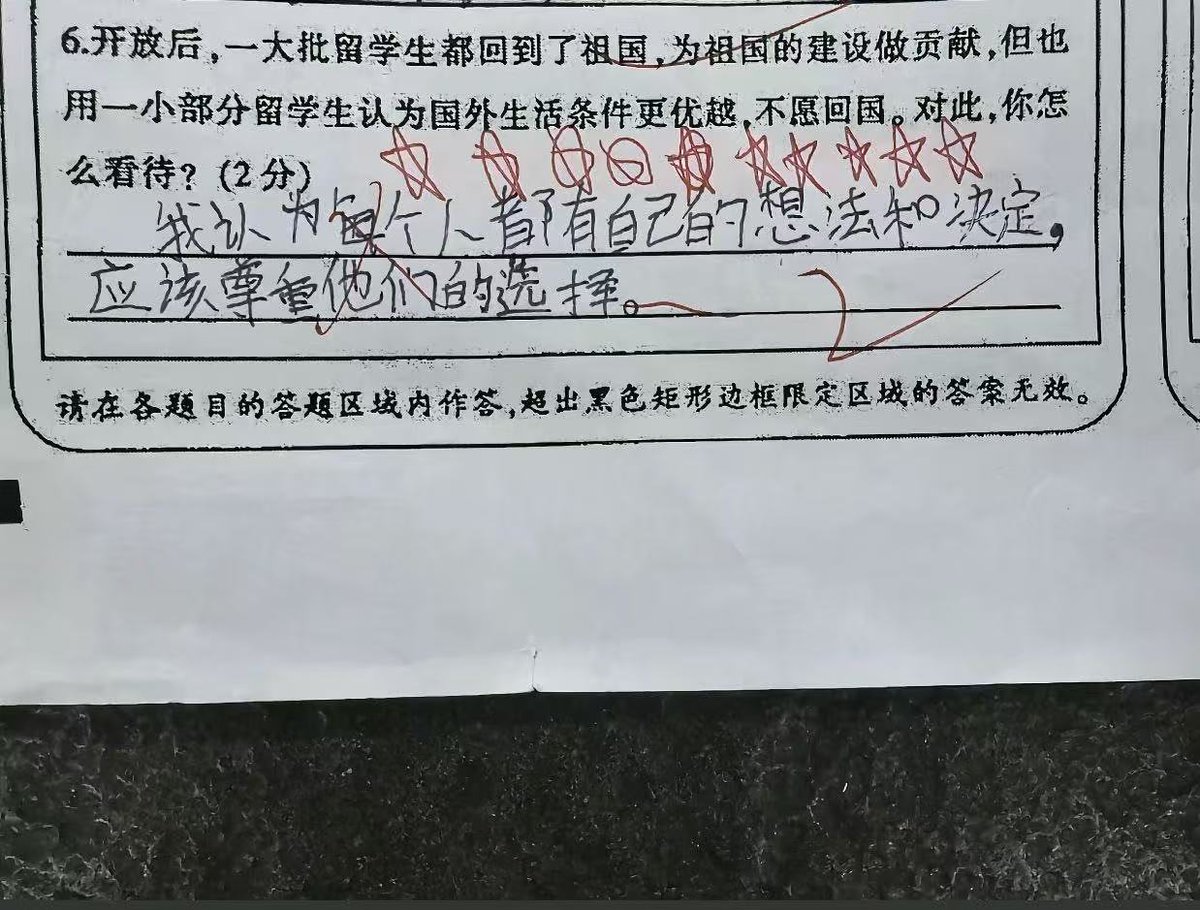 6.开放后,一大批留学生都回到了祖国,为祖国的建设做贡献,但也
用一小部分留学生认为国外生活条件更优越,不愿回国。对此,你怎
么看待？(2分)
我认为每个人都有自己的想法和决定,
应该尊重他们的选择。
请在各题目的答题区域内作答,超出黑色矩形边框限定区域的答案无效。